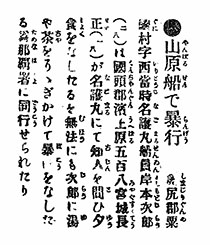 山原船で暴行
島尻郡粟
國村字西當時名護丸船員岸本次郎
(二八)は國頭郡濱上原五百八宮城長
正(一九)が名護丸にて知人を問ひ夕
食をなしたるを無法にも次郎に湯
や茶をかけて暴いをなした
る為那覇署に同行せられたり